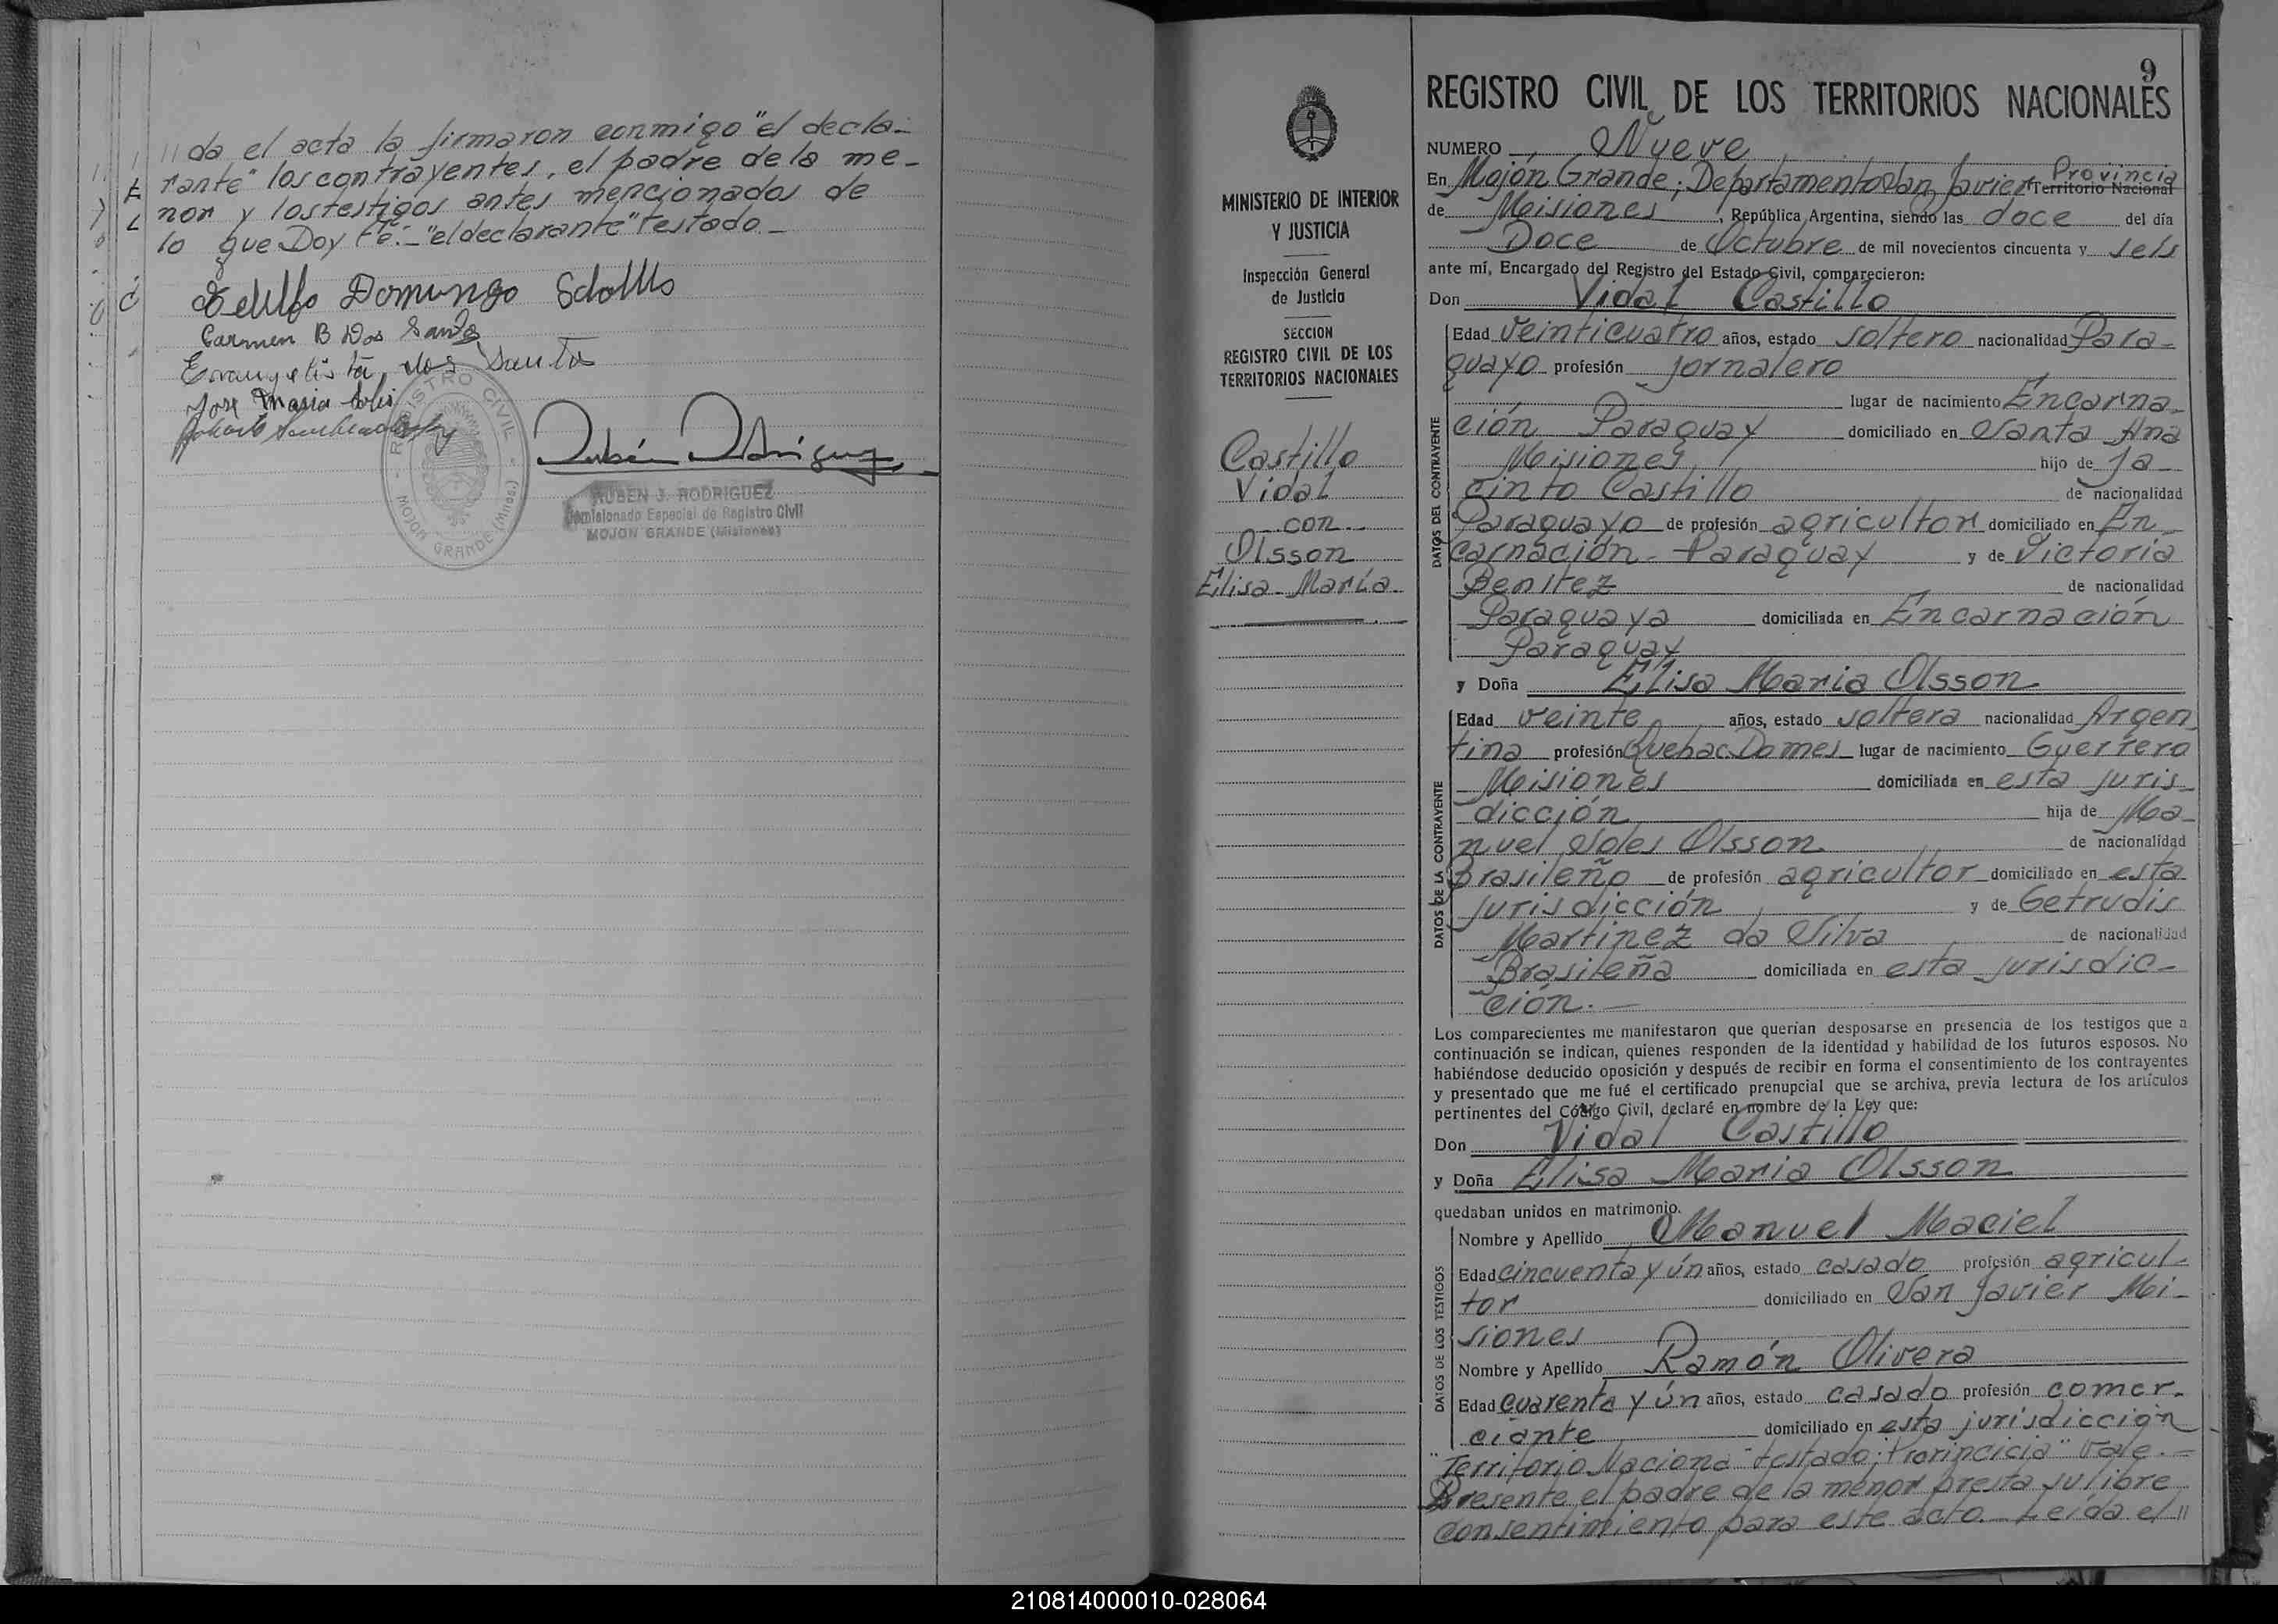 da el acta la firmaron conmigo "el decla-
rante" los contrayentes, el padre de la me-
nor y los testigos antes mencionados de
lo que Doy Fé.- "el declarante" testado.-
Domingo
Carmen B Dos Santos
Evangelista dos Santos
Jose Maria
REGISTRO CIVIL
MOJON GRANDE (Mnes.)
RUBEN J. RODRIGUEZ
Comisionado Especial de Registro Civil
MOJON GRANDE (Misiones)
MINISTERIO DE INTERIOR
Y JUSTICIA
Inspección General
de Justicia
SECCION
REGISTRO CIVIL DE LOS
TERRITORIOS NACIONALES
Castillo
Vidal
con
Olsson
Elisa María
9
REGISTRO CIVIL DE LOS TERRITORIOS NACIONALES
NUMERO Nueve
Provincia
En Mojón Grande; Departamento San Javier Territorio Nacional
de Misiones, República Argentina, siendo las doce del día
Doce de Octubre de mil novecientos cincuenta y seis
ante mí, Encargado del Registro del Estado Civil, comparecieron:
Don Vidal Castillo
DATOS DEL CONTRAYENTE
Edad veinticuatro años, estado soltero nacionalidad Para-
guayo profesión jornalero
lugar de nacimiento Encarna-
ción Paraguay domiciliado en Santa Ana
Misiones hijo de Ja-
cinto Castillo de nacionalidad
Paraguayo de profesión agricultor domiciliado en En-
carnación - Paraguay y de Victoria
Benitez de nacionalidad
Paraguaya domiciliada en Encarnación
Paraguay
y Doña Elisa Maria Olsson
DATOS DE LA CONTRAYENTE
Edad veinte años, estado soltera nacionalidad Argen
tina profesión Quehac. Domes lugar de nacimiento Guerrero
Misiones domiciliada en esta juris-
dicción hija de Ma-
nuel Soles Olsson de nacionalidad
Brasileño de profesión agricultor domiciliado en esta
jurisdicción y de Getrudis
Martinez da Silva de nacionalidad
Brasileña domiciliada en esta jurisdic-
ción.-
Los comparecientes me manifestaron que querían desposarse en presencia de los testigos que a
continuación se indican, quienes responden de la identidad y habilidad de los futuros esposos. No
habiéndose deducido oposición y después de recibir en forma el consentimiento de los contrayentes
y presentado que me fué el certificado prenupcial que se archiva, previa lectura de los artículos
pertinentes del Código Civil, declaré en nombre de la Ley que:
Don Vidal Castillo
y Doña Elisa Maria Olsson
quedaban unidos en matrimonio.
DATOS DE LOS TESTIGOS
Nombre y Apellido Manuel Maciel
Edad cincuenta y ún años, estado casado profesión agricul-
tor domiciliado en San Javier Mi-
siones
Nombre y Apellido Ramón Olivera
Edad cuarenta y ún años, estado casado profesión comer-
ciante domiciliado en esta jurisdicción
"Territorio Naciona" testado; "Provincicia" Vale.-
Presente el padre de la menor presta su libre
consentimiento para este acto.- Leida el //
210814000010-028064